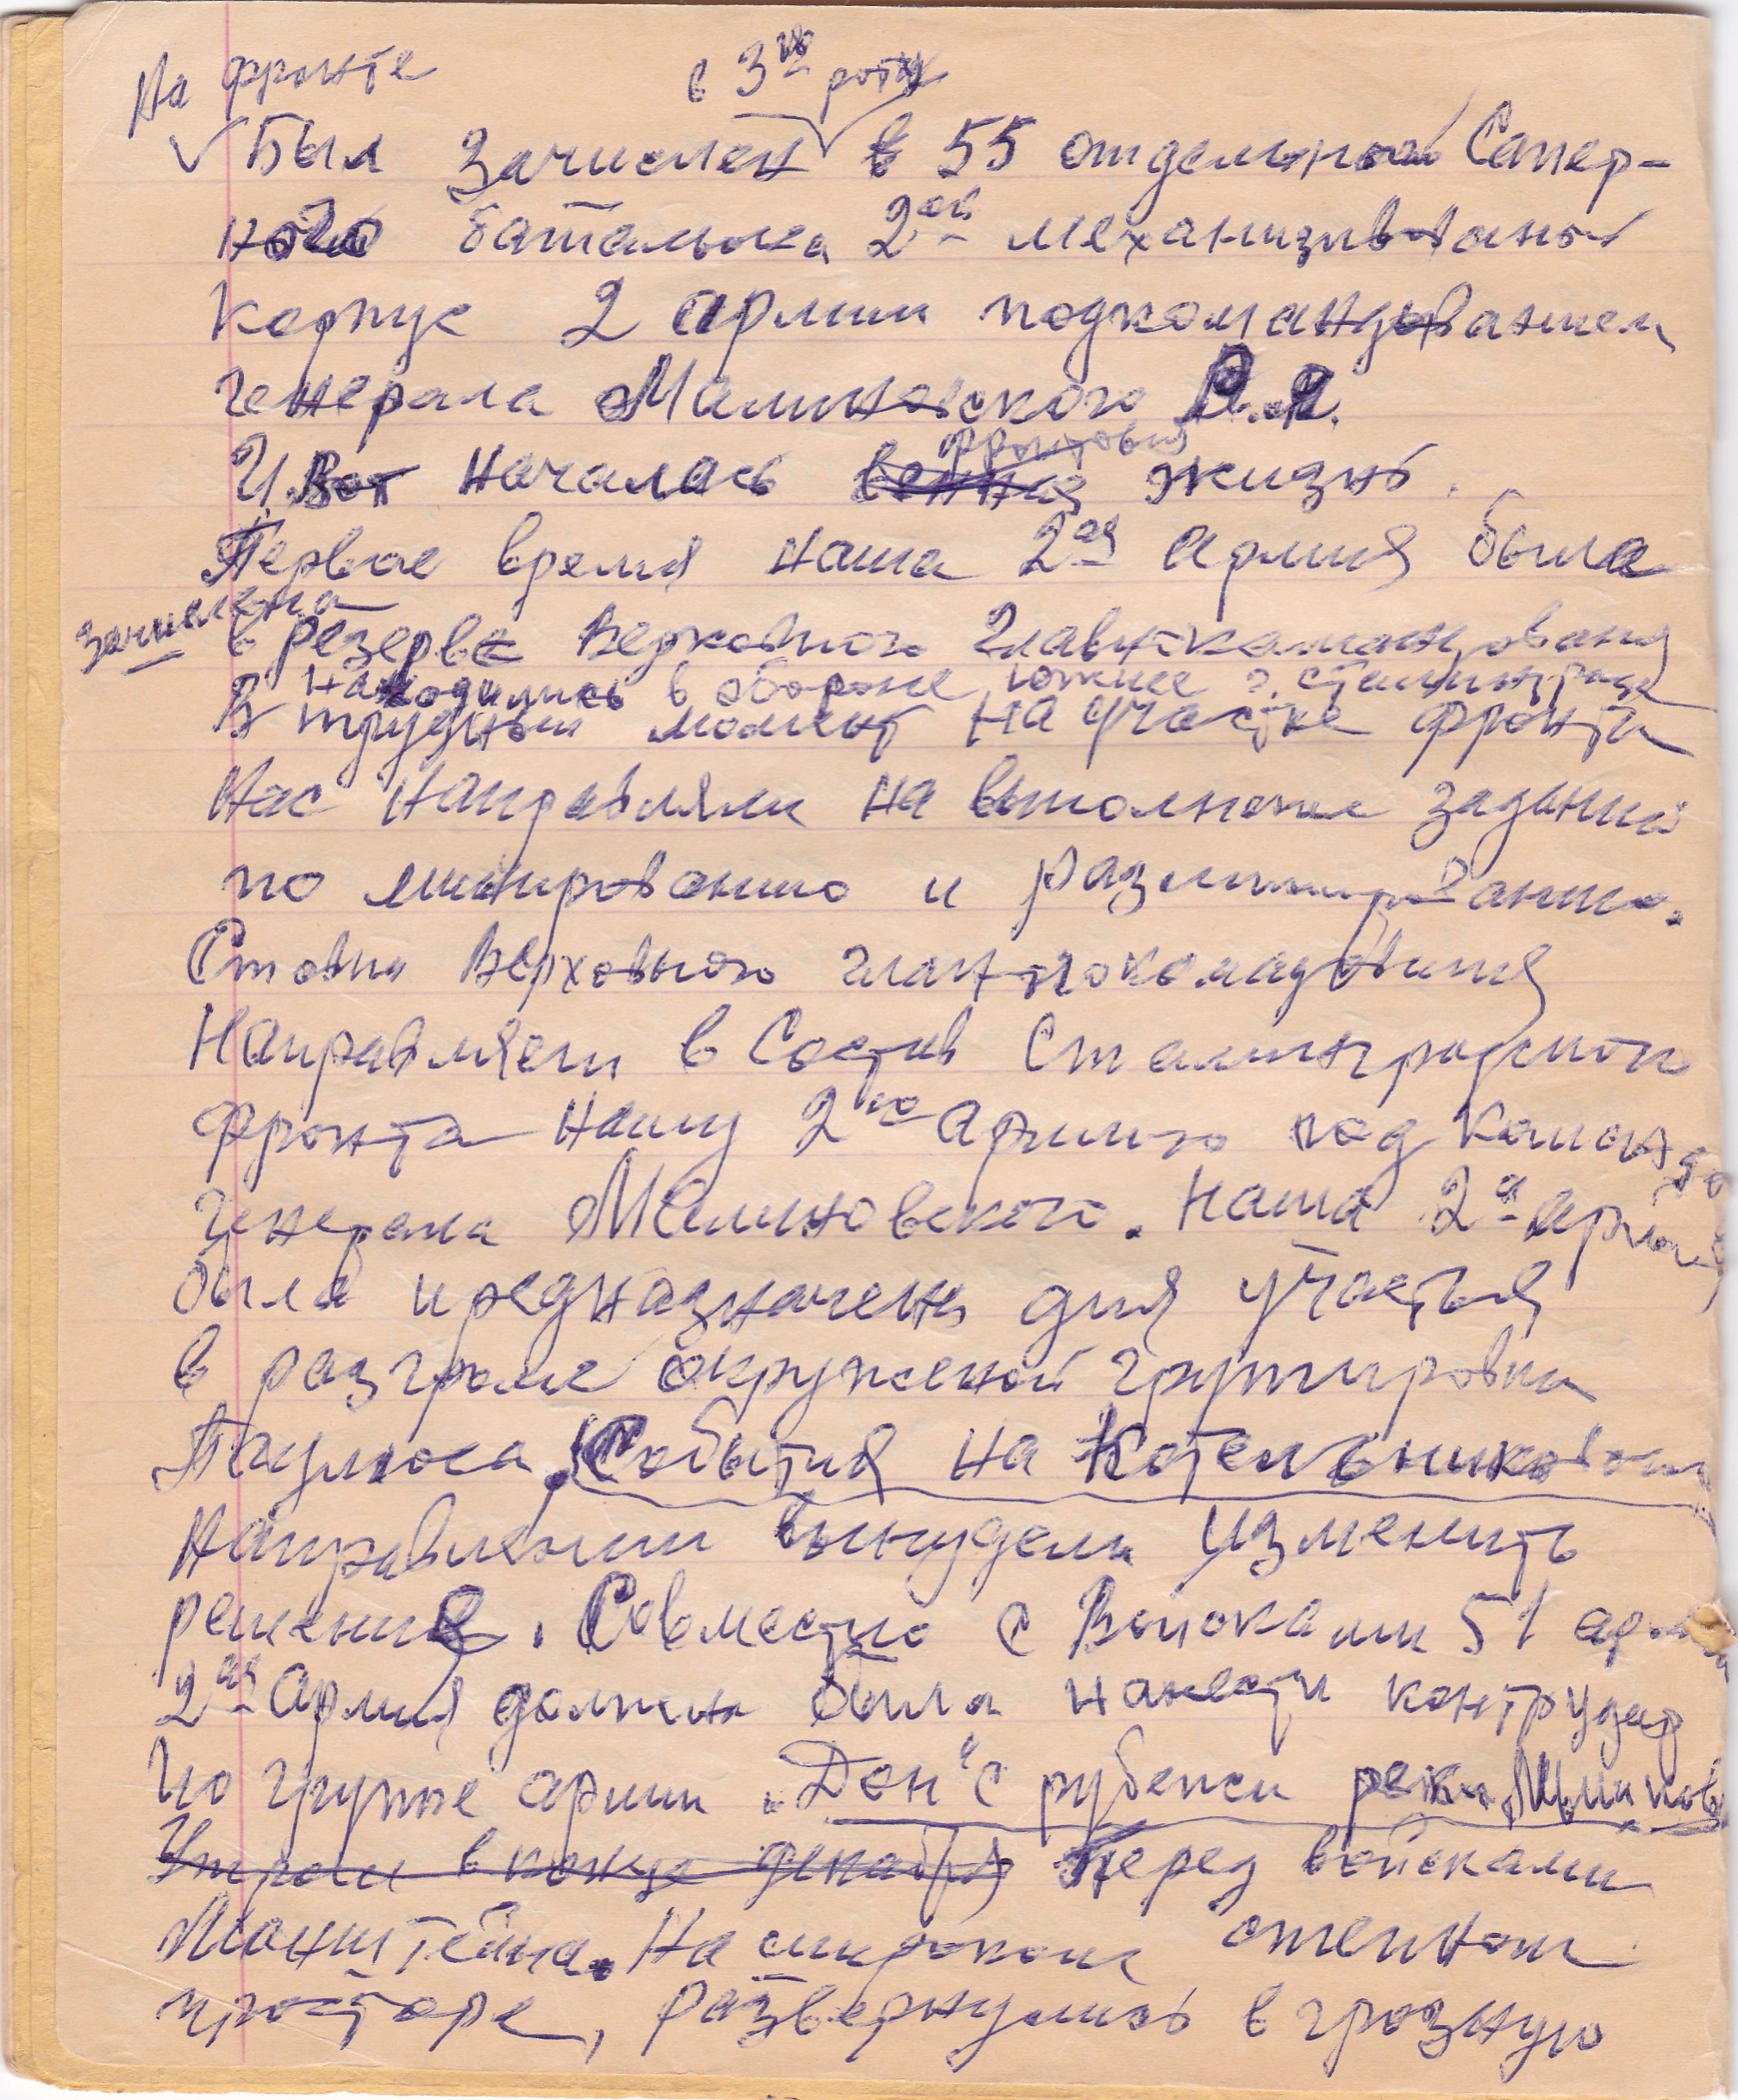 На фронте
в 3ю роту
Был зачислен в 55 отдельной Сапер-
ного батальона 2ой механизированы
корпус 2 армии подкомандыванием
генерала Малиновского Р.Я.
И Вот началась фронтовая жизнь.
Первое время наша 2ая армия была
зачислена
в резерве Верховного Главнокамандования
Находились в обороне, южнее г. сталинграда
В трудный момент на участке фронта
Нас направляли на выполнение заданий
по минированию и разминированию.
Ставка Верховного главнокомадования
Направляет в Состав Сталинградского
фронта нашу 2ую Армию под команд
генерала Малиновского. Наша 2я армия
была предназначена для участия
в разгроме окруженой групировки
Паулюса. События на Котельниковом
Направлении вынудели изменить
решения. Совместно с Войсками 51 арм
2ая Армия должна была нанести контрудар
По групе армии „Дон“ с рубежа реки Мышков
Утром в конце декабря перед войсками
Манштейна. На широком степном
просторе, развернулись в грозную